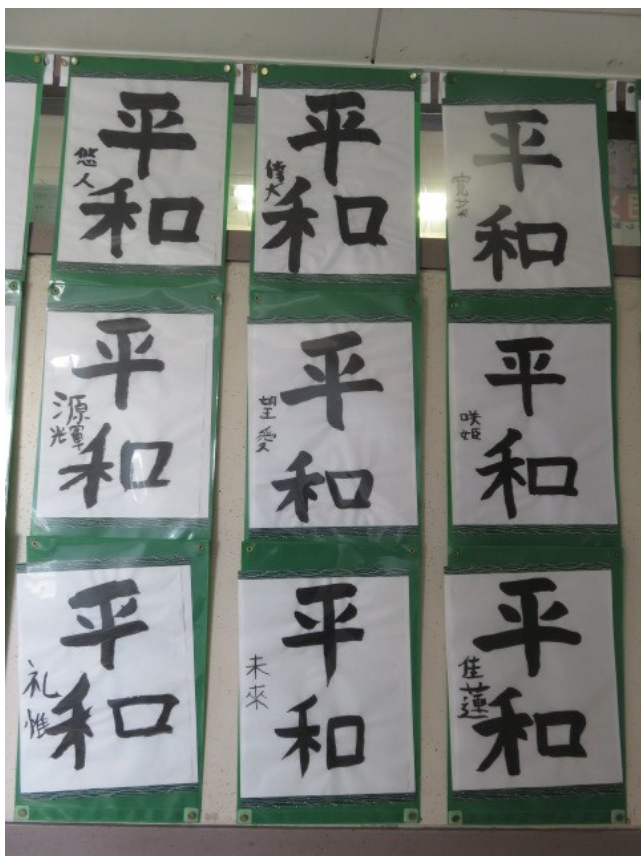 平和
悠人
平和
偉大
平和
寛菜
平和
源輝
平和
望愛
平和
咲姫
平和
礼惟
平和
未來
平和
佳蓮